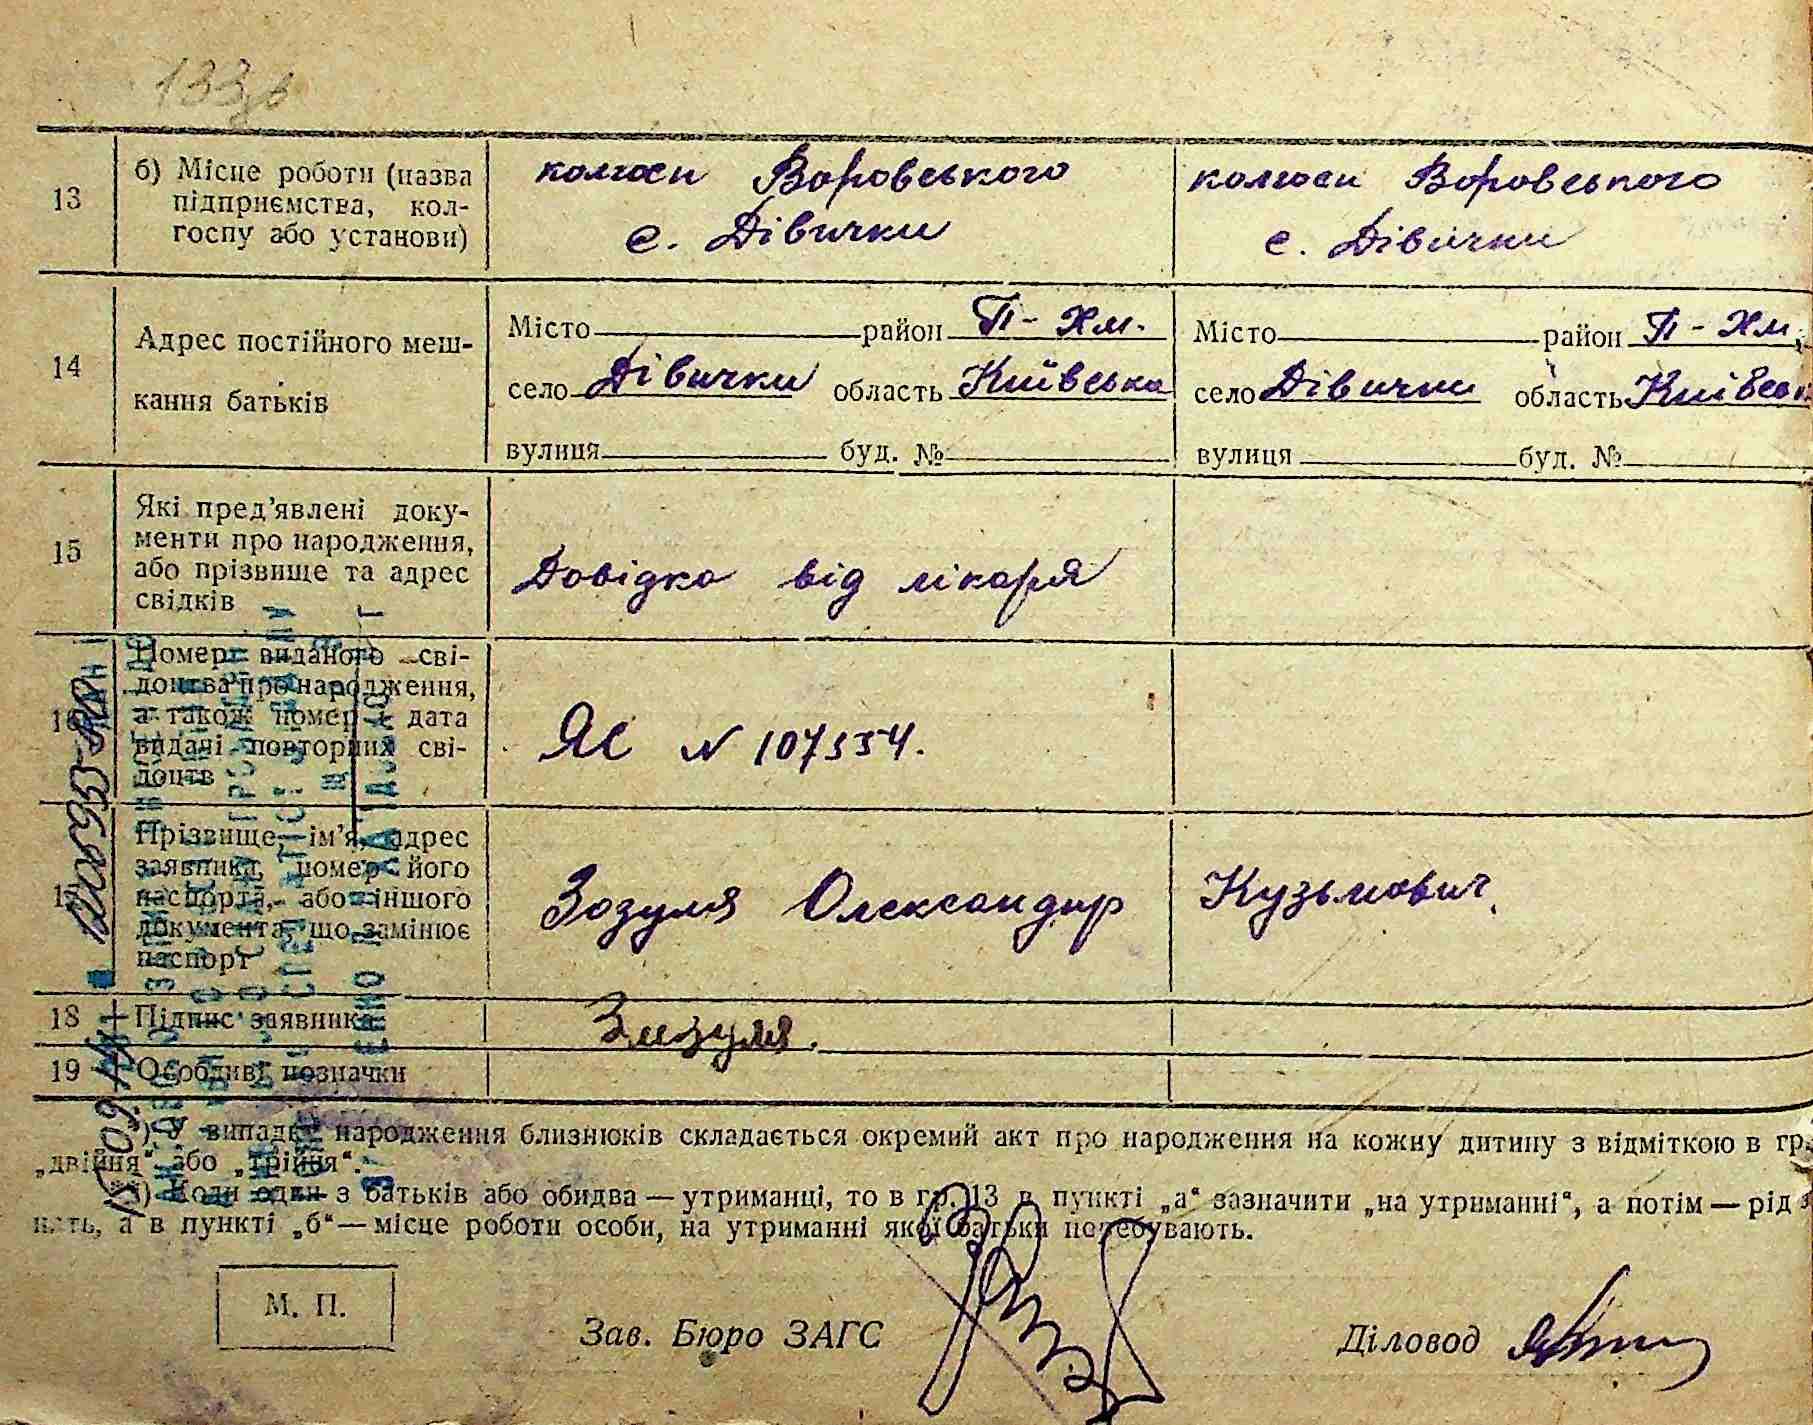 133в
13
б) Місце роботи (назва
підприємства, кол-
госпу або установи)
колгосп Воровського
с. Дівички
колгосп Воровського
с. Дівички
14
Адрес постійного меш-
кання батьків
Місто район П-Хм.
село Дівички область Київська
вулиця буд. №
Місто район П-Хм.
село Дівички область Київськ
вулиця буд. №
15
Які пред'явлені доку-
менти про народження,
або прізвище та адрес
свідків
Довідка від лікаря
16
Номер виданого сві-
доцтва про народження,
а також номер і дата
видачі повторних сві-
доцтв
ЯС N 107554.
17
Прізвище, ім'я, адрес
заявника, номер його
паспорта, або іншого
документа, що замінює
паспорт
Зозуля Олександр Кузьмович
18
Підпис заявника
Зозуля.
19
Особливі позначки
) У випадку народження близнюків складається окремий акт про народження на кожну дитину з відміткою в гр.
„двійня“ або „трійня“.
) Коли один з батьків або обидва — утриманці, то в гр. 13 в пункті „а“ зазначити „на утриманні“, а потім — рід
а в пункті „б“ — місце роботи особи, на утриманні якої батьки перебувають.
М. П.
Зав. Бюро ЗАГС
Діловод